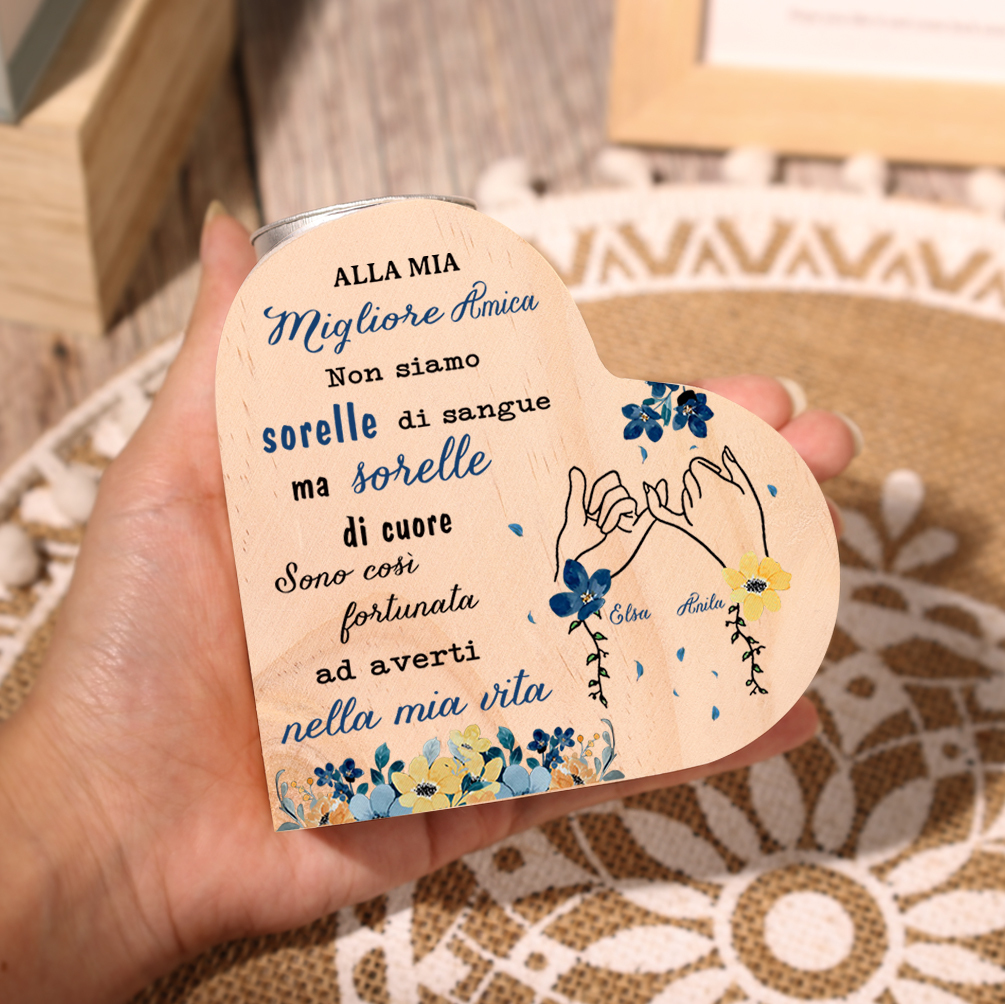 ALLA MIA
Migliore Amica
Non siamo
sorelle di sangue
ma sorelle
di cuore
Sono così
fortunata
ad averti
nella mia vita
Elsa
Anila